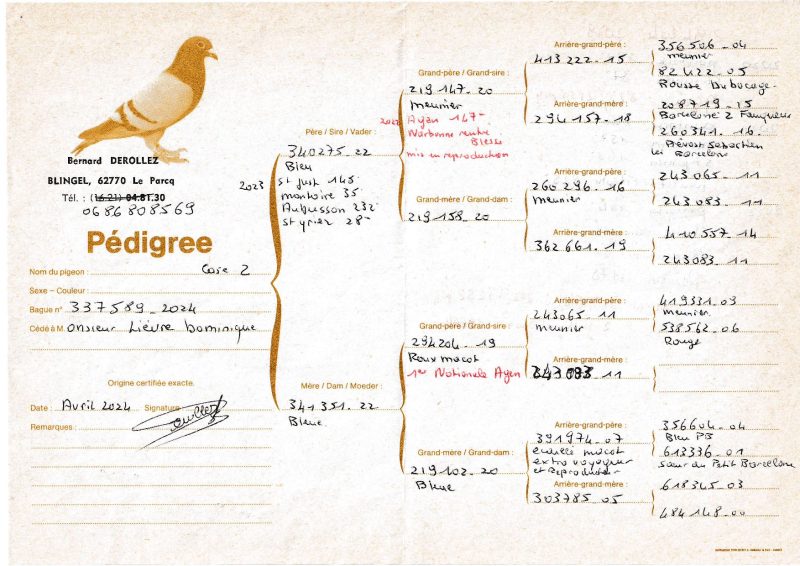 Bernard DEROLLEZ
BLINGEL, 62770 Le Parcq
Tél. : (16-21) 04.81.30
0686808569
Pédigree
Nom du pigeon : Case 2
Sexe – Couleur :
Bague n° 337589_2024
Cédé à M. onsieur Lièvre Dominique
Origine certifiée exacte.
Date : Avril 2024 Signature
Remarques :
Père / Sire / Vader :
340275_22
Bleu
2023
St Just 145
montoire 35
Aubusson 232
St yriex 28
Mère / Dam / Moeder :
341351.22
Bleue
Grand-père / Grand-sire :
219147_20
meunier
Ayen 147
Narbonne rentre
Blessé
mis en reproduction
Grand-mère / Grand-dam :
219158_20
Grand-père / Grand-sire :
294204_19
Roux macot
1er Nationale Ayen
Grand-mère / Grand-dam :
219102_20
Bleue
Arrière-grand-père :
413222_15
Arrière-grand-mère :
294157_18
Arrière-grand-père :
260296_16
meunier
Arrière-grand-mère :
362661_19
Arrière-grand-père :
243065_11
meunier
Arrière-grand-mère :
243083_11
Arrière-grand-père :
391974_07
macot
extra voyageur
et Reproducteur
Arrière-grand-mère :
303785_05
356506_04
meunier
82422_05
Rousse Dubocage
208719_15
Barcelone 2
260341_16
Prévost Sébastien
Barcelone
243065_11
243083_11
410557_14
243083_11
419331_03
meunier
538562_06
Rouge
356604_04
Bleu PB
613336_01
Sœur du Petit Barcelone
618345_03
484148_00